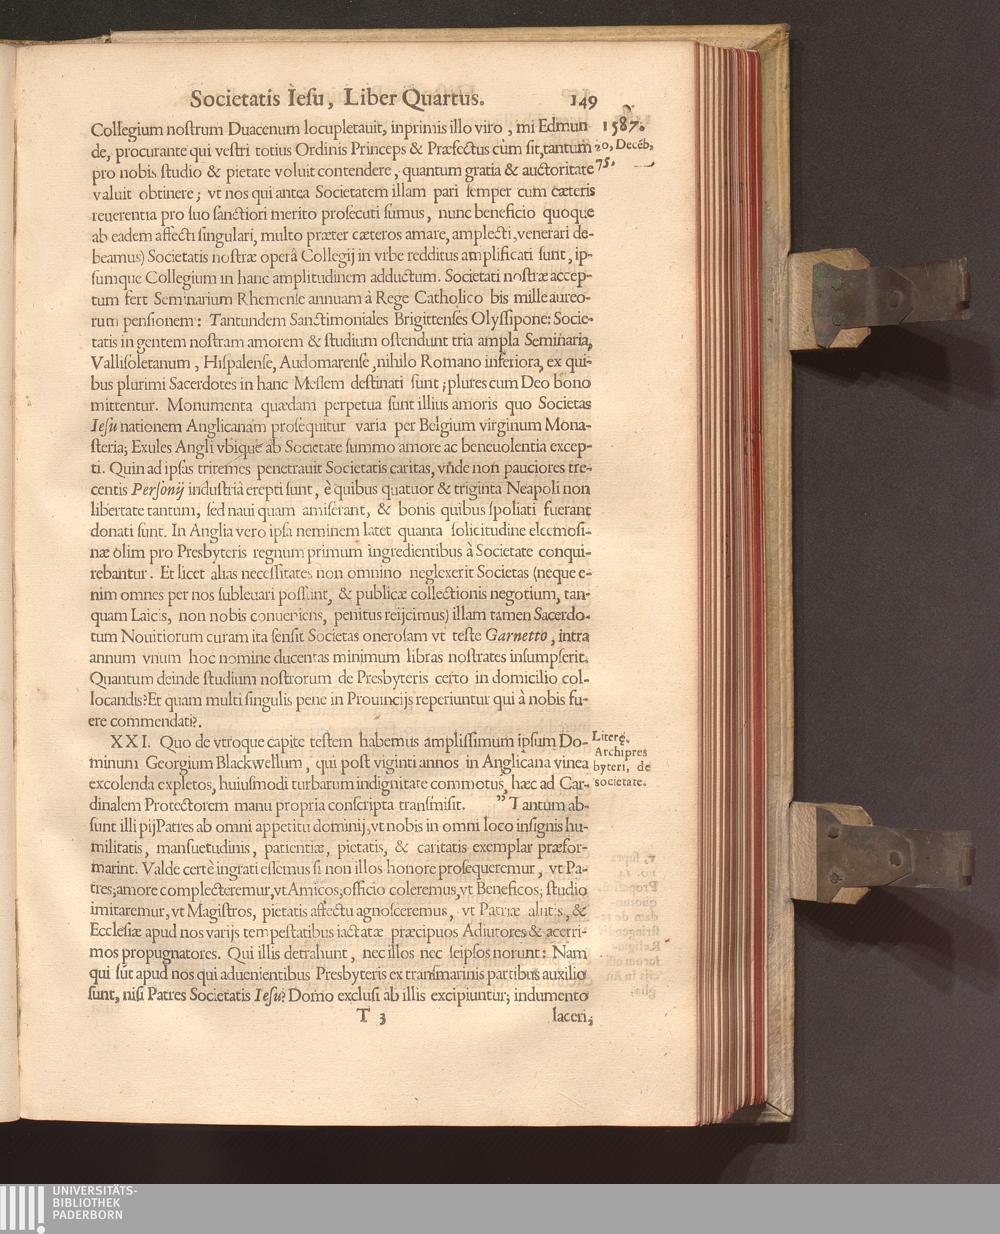 Societatis Iesu, Liber Quartus. 149
Collegium nostrum Duacenum locupletauit, inprimis illo viro, mi Edmun- 1587.
de, procurante qui vestri totius Ordinis Princeps & Præfectus cum sit, tantum 20, Decẽb,
pro nobis studio & pietate voluit contendere, quantum gratia & auctoritate 75.
valuit obtinere; vt nos qui antea Societatem illam pari semper cum cæteris
reuerentia pro suo sanctiori merito prosecuti sumus, nunc beneficio quoque
ab eadem affecti singulari, multo præter cæteros amare, amplecti, venerari de-
beamus) Societatis nostræ operâ Collegij in vrbe redditus amplificati sunt, ip-
sumque Collegium in hanc amplitudinem adductum. Societati nostræ accep-
tum fert Seminarium Rhemense annuam à Rege Catholico bis mille aureo-
rum pensionem: Tantundem Sanctimoniales Brigittenses Olyssipone: Socie-
tatis ingentem nostram amorem & studium ostendunt tria ampla Seminaria,
Vallisoletanum, Hispalense, Audomarense, nihilo Romano inferiora, ex qui-
bus plurimi Sacerdotes in hanc Messem destinati sunt; plures cum Deo bono
mittentur. Monumenta quædam perpetua sunt illius amoris quo Societas
Iesu nationem Anglicanam prosequitur varia per Belgium virginum Mona-
steria; Exules Angli vbique ab Societate summo amore ac beneuolentia excep-
ti. Quin ad ipsas triremes penetrauit Societatis caritas, vnde non pauciores tre-
centis Personij industriâ erepti sunt, è quibus quatuor & triginta Neapoli non
libertate tantum, sed naui quam amiserant, & bonis quibus spoliati fuerant
donati sunt. In Anglia vero ipsa neminem latet quanta solicitudine eleemosi-
næ olim pro Presbyteris regnum primum ingredientibus à Societate conqui-
rebantur. Et licet alias necessitates non omnino neglexerit Societas (neque e-
nim omnes per nos subleuari possunt, & publicæ collectionis negotium, tan-
quam Laicis, non nobis conueniens, penitus reijcimus) illam tamen Sacerdo-
tum Nouitiorum curam ita sensit Societas onerosam vt teste Garnetto, intra
annum vnum hoc nomine ducentas minimum libras nostrates insumpserit.
Quantum deinde studium nostrorum de Presbyteris certo in domicilio col-
locandis? Et quam multi singulis pene in Prouincijs reperiuntur qui à nobis fu-
ere commendati?.
XXI. Quo de vtroque capite testem habemus amplissimum ipsum Do-
minum Georgium Blackwellum, qui post viginti annos in Anglicana vinea
excolenda expletos, huiusmodi turbarum indignitate commotus, hæc ad Car-
dinalem Protectorem manu propria conscripta transmisit. ” Tantum ab-
sunt illi pij Patres ab omni appetitu dominij, vt nobis in omni loco insignis hu-
militatis, mansuetudinis, patientiæ, pietatis, & caritatis exemplar præfor-
marint. Valde certè ingrati essemus si non illos honore prosequeremur, vt Pa-
tres; amore complecteremur, vt Amicos; officio coleremus, vt Beneficos; studio
imitaremur, vt Magistros, pietatis affectu agnosceremus, vt Patriæ alutis, &
Ecclesiæ apud nos varijs tempestatibus iactatæ præcipuos Adiutores & acerri-
mos propugnatores. Qui illis detrahunt, nec illos nec seipsos norunt: Nam
qui sũt apud nos qui aduenientibus Presbyteris ex transmarinis partibus auxilio
sunt, nisi Patres Societatis Iesu? Domo exclusi ab illis excipiuntur; indumento
T 3 laceri;
Literę
Archipres
byteri, de
societate.
UNIVERSITÄTS-
BIBLIOTHEK
PADERBORN